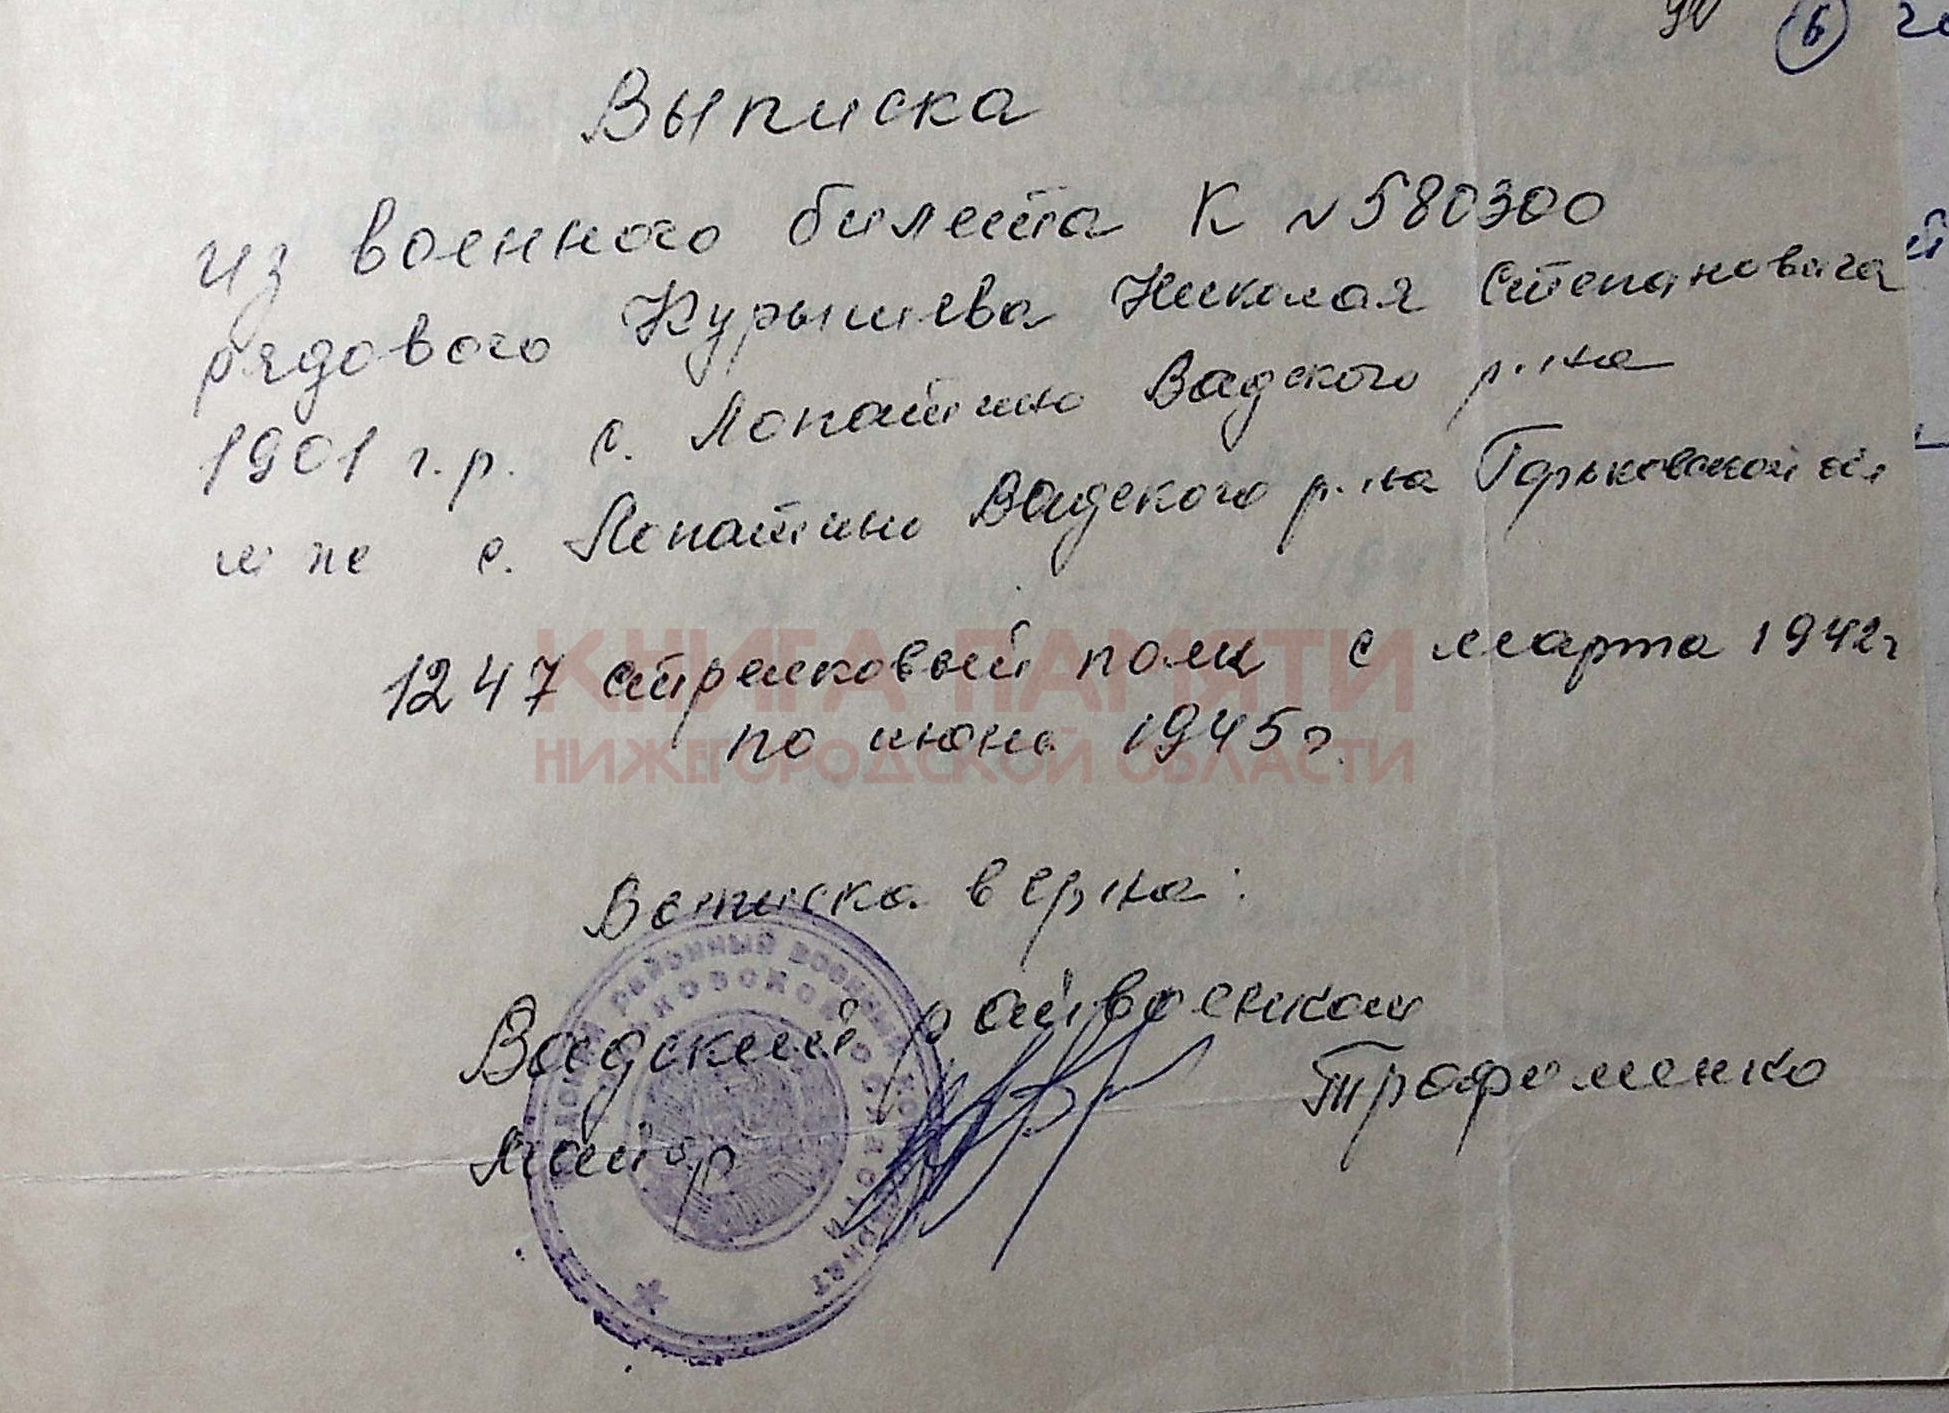 6
Выписка
из военного билета К №580300
рядового Курышева Николая Степановича
1901 г.р. с. Лопатино Вадского р-на
м же с. Лопатино Вадского р-на Горьковской обл
1247 стрелковый полк с марта 1942г
по июнь 1945г.
КНИГА ПАМЯТИ
НИЖЕГОРОДСКОЙ ОБЛАСТИ
Выписка верна:
Вадский райвоенком
майор
Трофименко
районный военный
ОБЛАСТИ